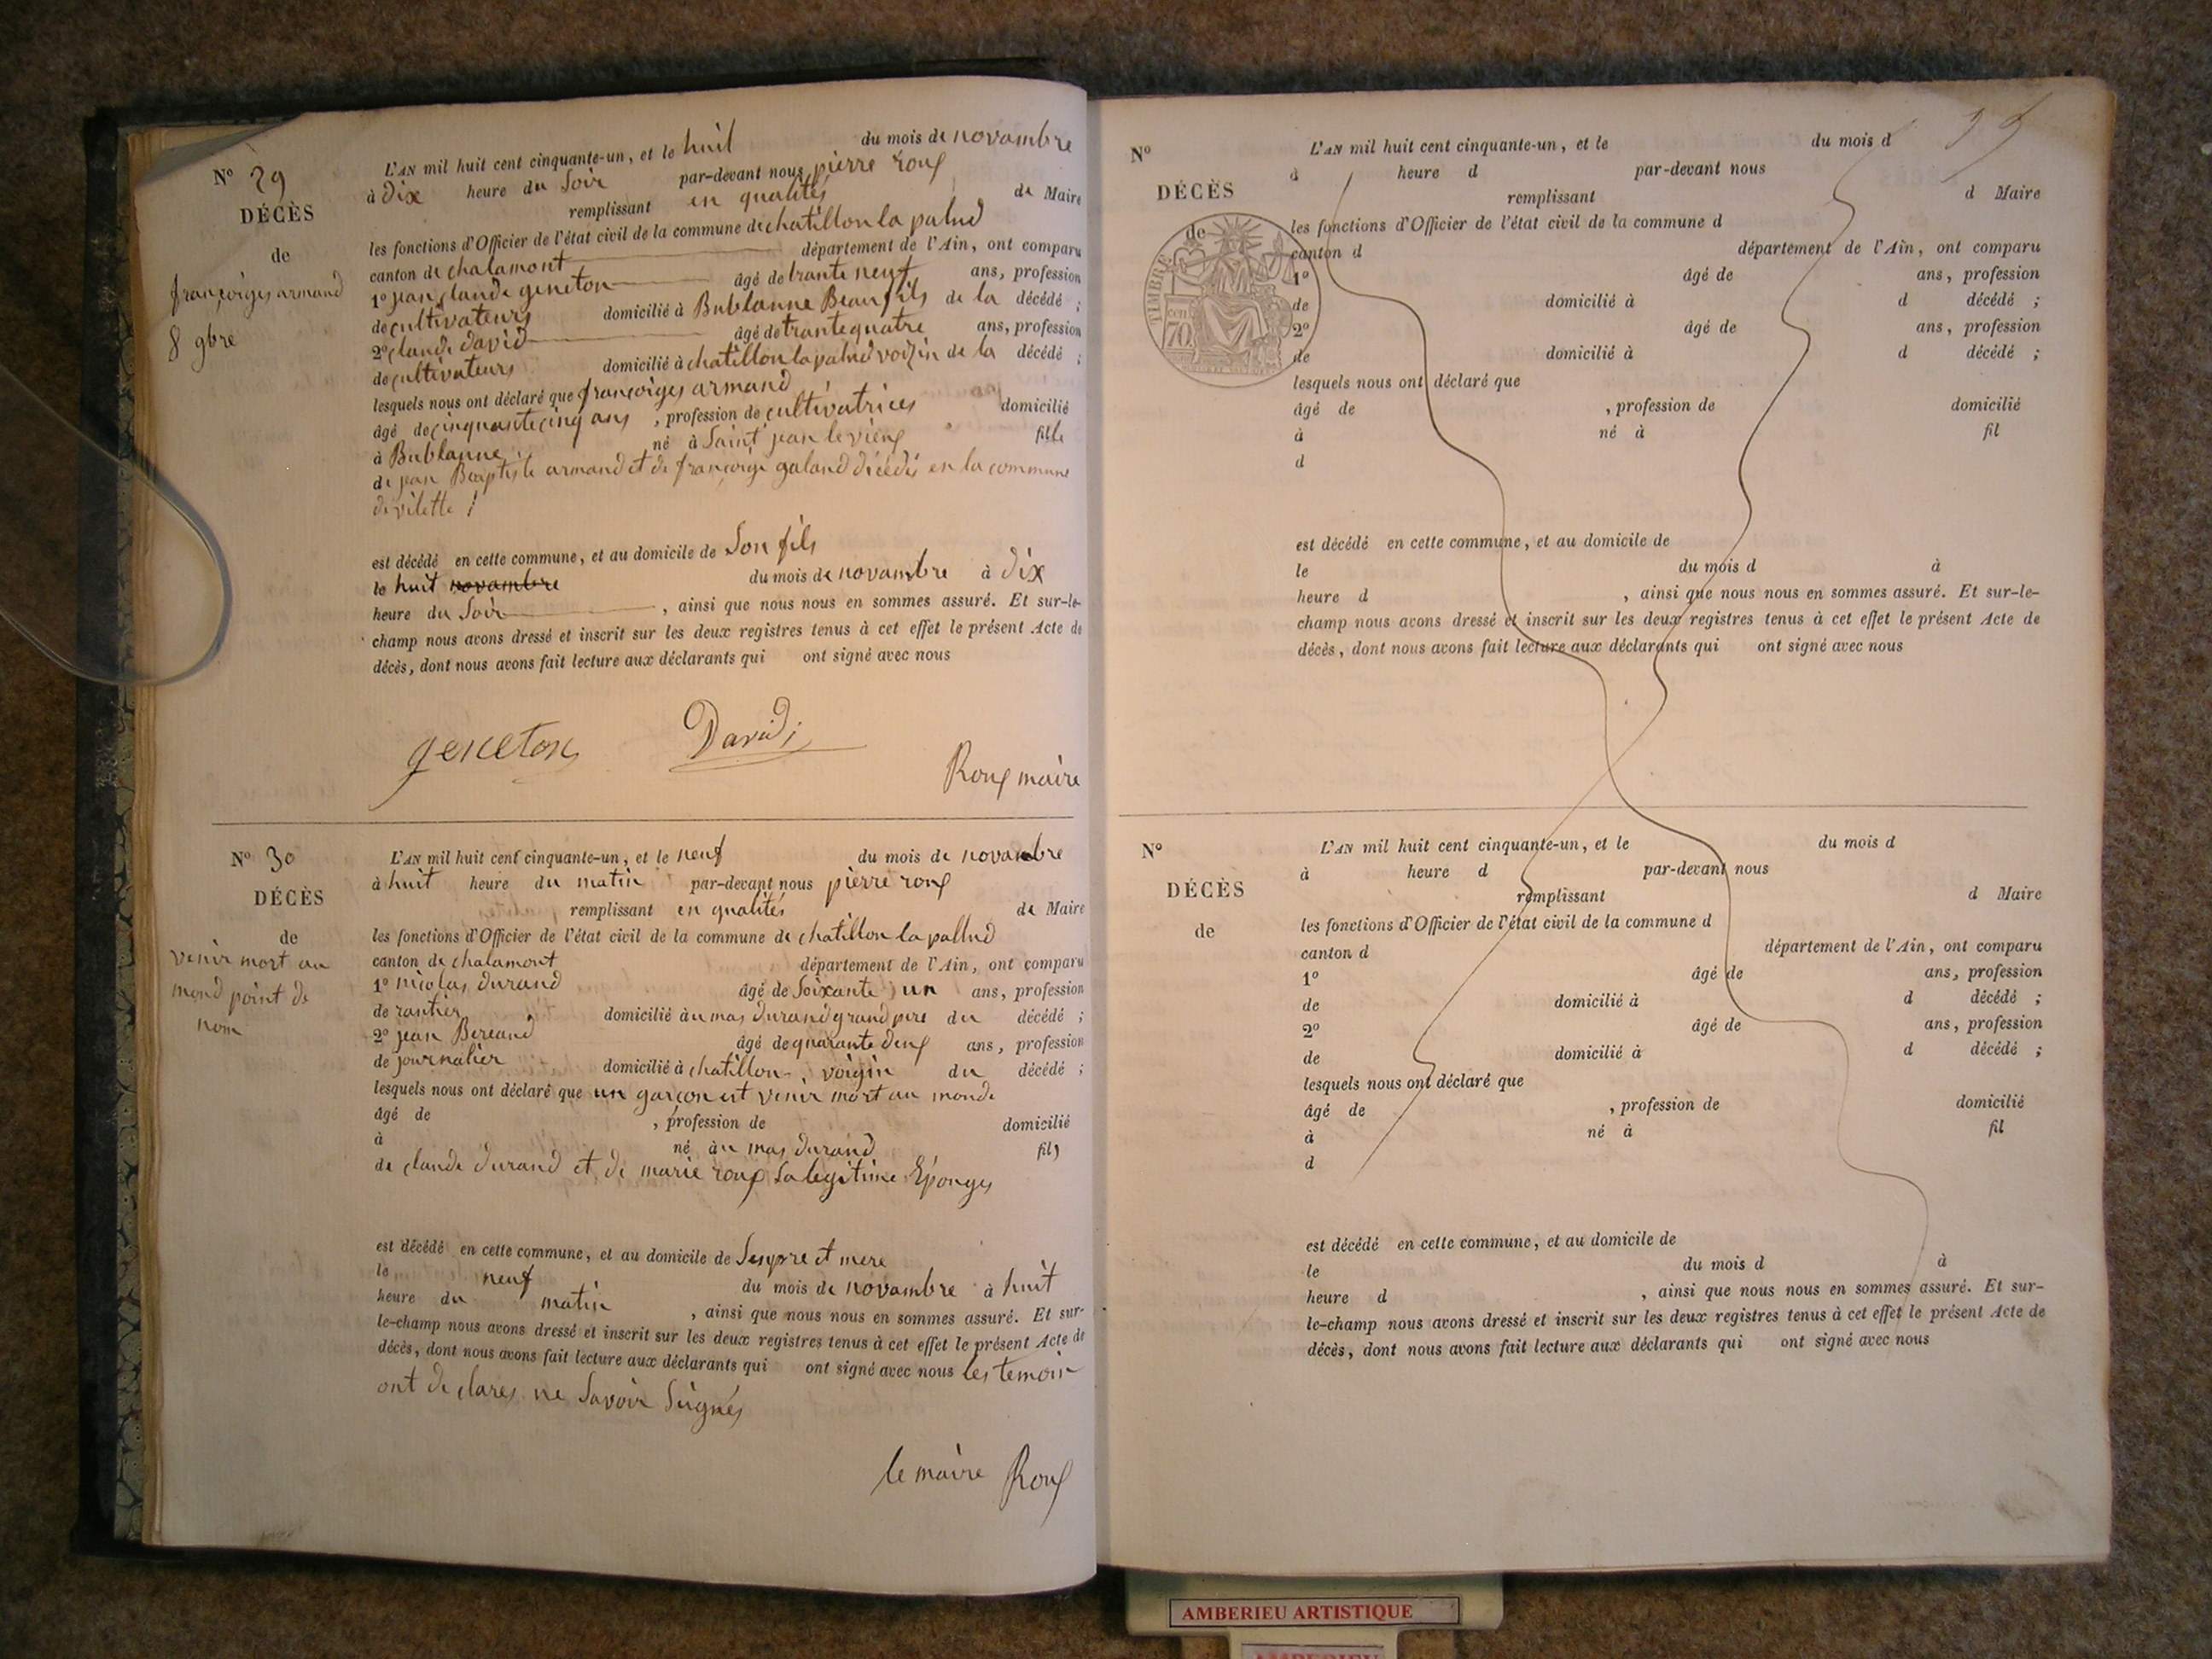 N° 29
DÉCÈS
de
françoiges armand
8 9bre
L'AN mil huit cent cinquante-un, et le huit du mois de novambre
à dix heure du Soir par-devant nous pierre rouf
remplissant en qualités de Maire
les fonctions d'Officier de l'état civil de la commune de chatillon la palud
canton de chalamont département de l'Ain, ont comparu
1° jean claude geneton âgé de trante neuf ans, profession
de cultivateurs domicilié à Bublanne Beau fils de la décédé ;
2° claude david âgé de trante quatre ans, profession
de cultivateurs domicilié à chatillon la palud voizin de la décédé ;
lesquels nous ont déclaré que françoiges armand
âgé de cinquante cinq ans , profession de cultivatrices domicilié
à Bublanne né à Saint jean le vieux fille
de jean Baaptiste armand et de françoige galand décédés en la commune
de vilette
est décédé en cette commune, et au domicile de Son fils
le huit novambre du mois de novambre à dix
heure du Soir , ainsi que nous nous en sommes assuré. Et sur-le-
champ nous avons dressé et inscrit sur les deux registres tenus à cet effet le présent Acte de
décès, dont nous avons fait lecture aux déclarants qui ont signé avec nous
geneton David
Rouf maire
N° 30
DÉCÈS
de
venir mort au
mond point de
nom
L'AN mil huit cent cinquante-un, et le neuf du mois de novambre
à huit heure du matin par-devant nous pierre rouf
remplissant en qualités de Maire
les fonctions d'Officier de l'état civil de la commune de chatillon la pallud
canton de chalamont département de l'Ain, ont comparu
1° nicolas durand âgé de Soixante un ans, profession
de rantier domicilié au mas durand grand pire du décédé ;
2° jean Bereaud âgé de quarante deuf ans, profession
de journalier domicilié à chatillon, voigin du décédé ;
lesquels nous ont déclaré que un garçon est venir mort au monde
âgé de , profession de domicilié
à né au mas durand fils
de claude durand et de marie rouf Sa legitime Éponges
est décédé en cette commune, et au domicile de Ses pre et mere
le neuf du mois de novambre à huit
heure du matin , ainsi que nous nous en sommes assuré. Et sur-
le-champ nous avons dressé et inscrit sur les deux registres tenus à cet effet le présent Acte de
décès, dont nous avons fait lecture aux déclarants qui ont signé avec nous les temoin
ont declares ne Savoir Signés
le maire Rouf
N°
DÉCÈS
de
TIMBRE
70 cen
L'AN mil huit cent cinquante-un, et le du mois d
à heure d par-devant nous
remplissant d Maire
les fonctions d'Officier de l'état civil de la commune d
canton d département de l'Ain, ont comparu
1° âgé de ans, profession
de domicilié à d décédé ;
2° âgé de ans, profession
de domicilié à d décédé ;
lesquels nous ont déclaré que
âgé de , profession de domicilié
à né à fil
d
est décédé en cette commune, et au domicile de
le du mois d à
heure d , ainsi que nous nous en sommes assuré. Et sur-le-
champ nous avons dressé et inscrit sur les deux registres tenus à cet effet le présent Acte de
décès, dont nous avons fait lecture aux déclarants qui ont signé avec nous
N°
DÉCÈS
de
L'AN mil huit cent cinquante-un, et le du mois d
à heure d par-devant nous
remplissant d Maire
les fonctions d'Officier de l'état civil de la commune d
canton d département de l'Ain, ont comparu
1° âgé de ans, profession
de domicilié à d décédé ;
2° âgé de ans, profession
de domicilié à d décédé ;
lesquels nous ont déclaré que
âgé de , profession de domicilié
à né à fil
d
est décédé en cette commune, et au domicile de
le du mois d à
heure d , ainsi que nous nous en sommes assuré. Et sur-
le-champ nous avons dressé et inscrit sur les deux registres tenus à cet effet le présent Acte de
décès, dont nous avons fait lecture aux déclarants qui ont signé avec nous
AMBERIEU ARTISTIQUE
AMBERIEU